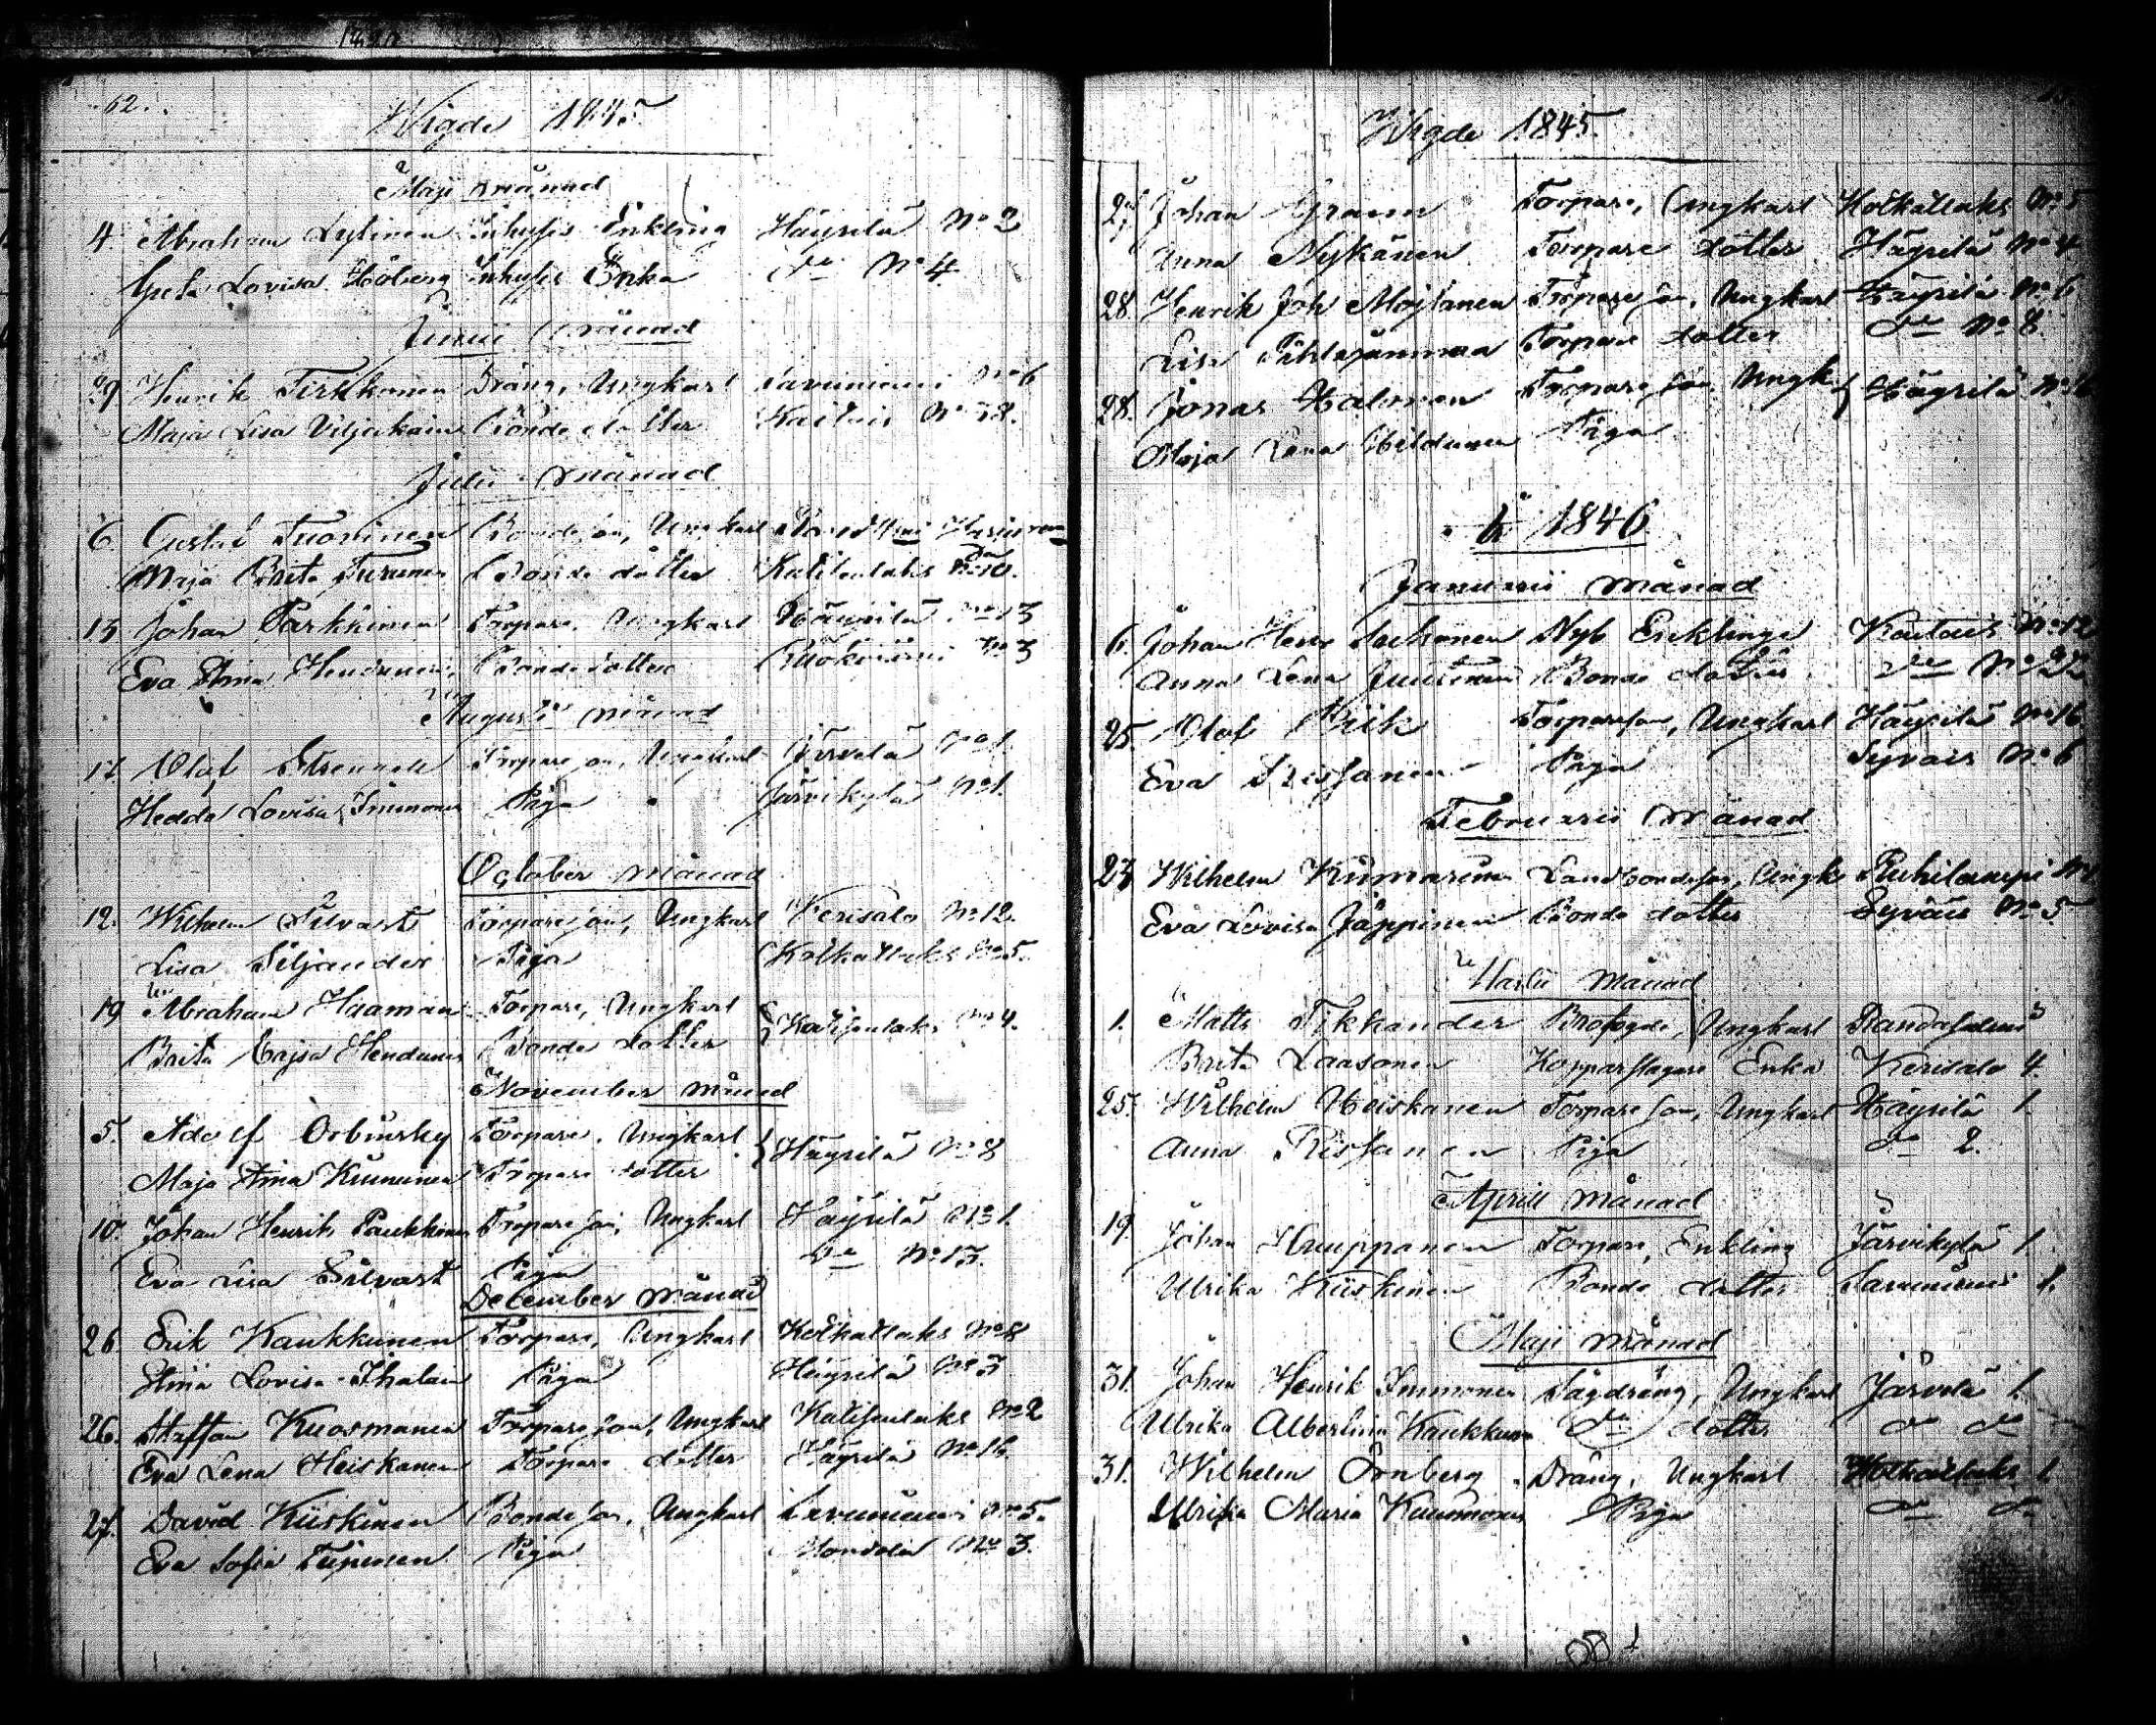 62.
Wigde 1845
Maji månad
4 Abraham Lylinen Inhyses Enkling Häyrilä No 2
Greta Lovisa Höberg Inhyses Enka do No 4
Junii månad
29 Henrik Tirkkonen Dräng, Ungkarl Savuniemi No 6
Maja Lisa Viljakain Bonde dotter Kaitais No 12.
Julii månad
6. Gustaf Tuovinen Bondeson, Ungkarl
Maja Brita Turunen Bonde dotter Katisenlaks No 10.
13 Johan Parkkinen Torpare, Ungkarl Häyrilä No 13
Eva Stina Hendunen, Bonde dotter No 3
Augusti månad
17. Olof Torpareson, Ungkarl Järvelä No 1.
Hedda Lovisa Immonen Piga Järvikylä No 1.
October månad
12. Wilhelm Silvast Torpareson, Ungkarl Kerisalo No 12.
Lisa Siljander Piga Kolkanlaks No 5.
19 Abraham Haaman Torpare, Ungkarl Katisenlaks No 4.
Brita Cajsa Hendunen Bonde dotter
November månad
5. Adolf Orbinsky Torpare, Ungkarl Häyrilä No 8
Maja Stina Kinnunen Torpare dotter
10. Johan Henrik Paukkunen Torpareson, Ungkarl Häyrilä No 1.
Eva Lisa Silvast Piga do No 13.
December månad
26 Erik Kaukkunen Torpare, Ungkarl Kolkanlaks No 8
Stina Lovisa Ihalain Piga Häyrilä No 3
26. Staffan Kuosmanen Torpareson, Ungkarl Katisenlaks No 2
Eva Lena Heiskanen Torpare dotter Häyrilä No 16.
27. David Kiiskinen Bondeson, Ungkarl Savuniemi No 5.
Eva Sofia Piga No 3.
Wigde 1845
27 Johan Grann Torpare, Ungkarl Kolkanlaks No 5
Anna Nykänen Torpare dotter Häyrilä No 4
28. Henrik Joh Mojlanen Torpareson, Ungkarl Häyrilä No 6
Lisa Pihlajanmaa Torpare dotter do No 8.
28. Jonas Halonen Torpareson Ungk Häyrilä No
Maja Lena Hildunen Piga
År 1846
Januarii månad
6. Johan Henr Nyb Enklinge Kaitais No 12
Anna Lena Juutinen Bonde dotter do No 27
25. Olof Krik Torpareson, Ungkarl Häyrilä No 16
Eva Rissanen Piga Syvais No 6
Februarii månad
23 Wilhelm Landbondeson, Ungk Ruhilampi No
Eva Lovisa Jäppinen Bonde dotter Syväis No 5
Martii månad
1. Matts Tikkander Brofogde, Ungkarl Randasalmi
Brita Laasonen Kopparslagare Enka Kerisalo 4.
25. Wilhelm Heiskanen Torpareson, Ungkarl Häyrilä 1.
Anna Rissanen Piga do 2.
Aprill månad
19. Johan Kauppanen Torpare, Enkling Järvikylä 1
Ulrika Kiiskinen Bonde dotter Savuniemi 1.
Maji månad
31. Johan Henrik Immonen Sågdräng, Ungkarl Järvelä 1.
Ulrika Albertina Kaukkunen do dotter do do
31. Wilhelm Örnberg Dräng, Ungkarl Kolkanlaks 1.
Ulrika Maria Piga do do